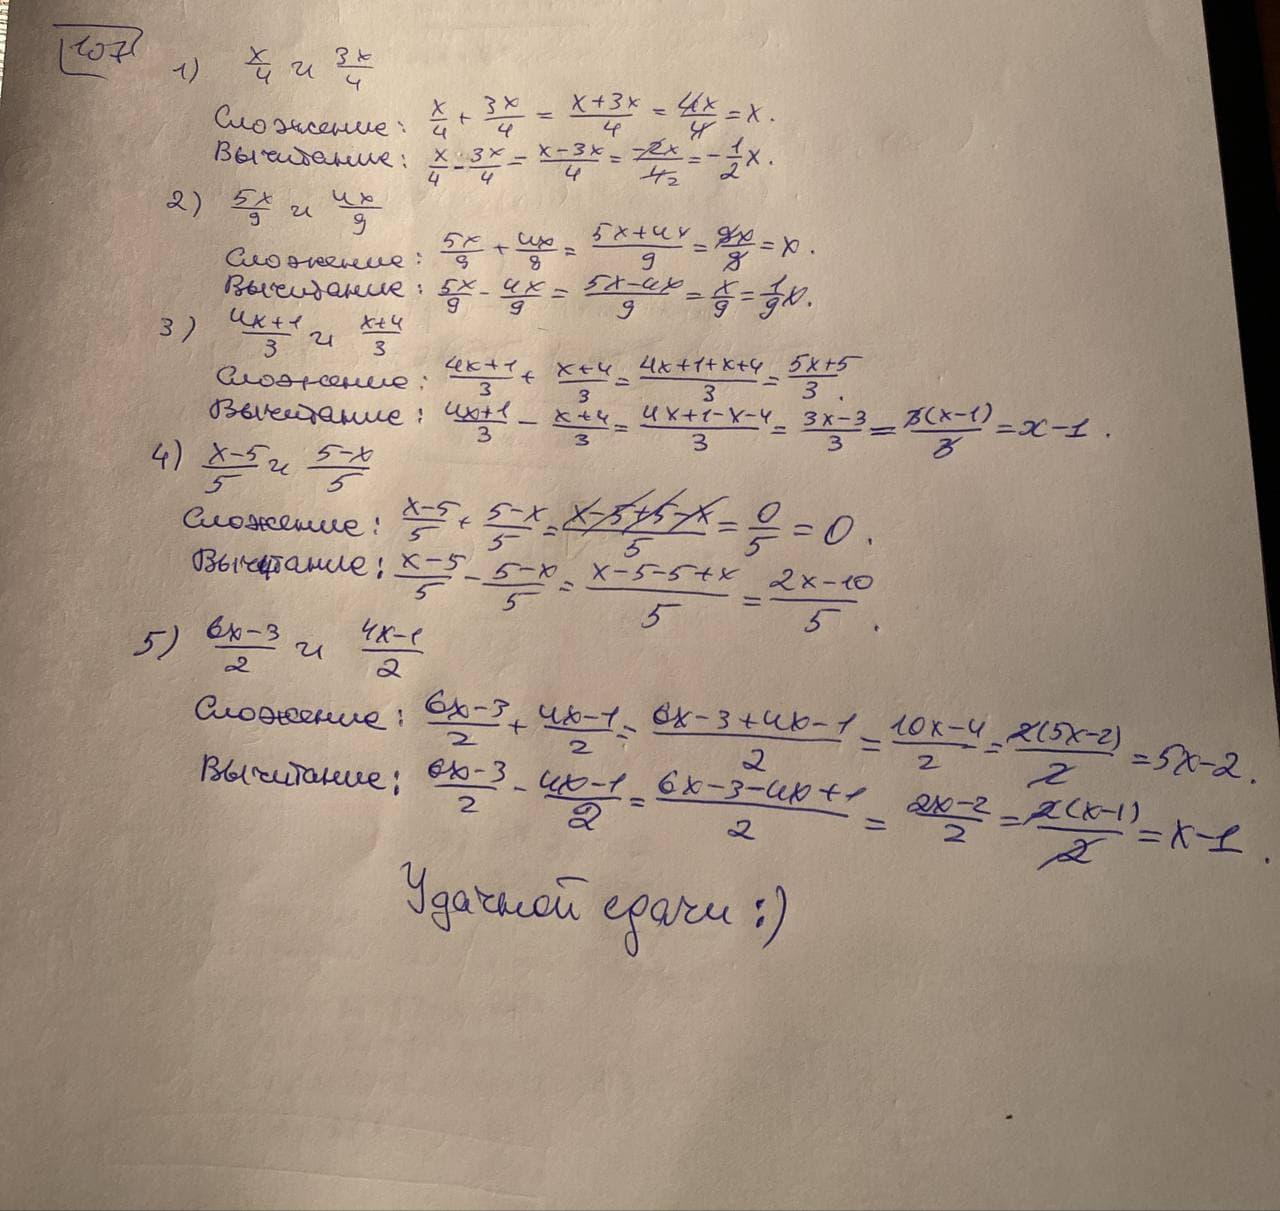 107
1) x/4 и 3x/4
Сложение: x/4 + 3x/4 = (x+3x)/4 = 4x/4 = x.
Вычитание: x/4 - 3x/4 = (x-3x)/4 = -2x/4 2 = -1/2 x.
2) 5x/9 и 4x/9
Сложение: 5x/9 + 4x/9 = (5x+4x)/9 = 9x/9 = x.
Вычитание: 5x/9 - 4x/9 = (5x-4x)/9 = x/9 = 1/9 x.
3) (4x+1)/3 и (x+4)/3
Сложение: (4x+1)/3 + (x+4)/3 = (4x+1+x+4)/3 = (5x+5)/3.
Вычитание: (4x+1)/3 - (x+4)/3 = (4x+1-x-4)/3 = (3x-3)/3 = 3(x-1)/3 = x-1.
4) (x-5)/5 и (5-x)/5
Сложение: (x-5)/5 + (5-x)/5 = (x-5+5-x)/5 = 0/5 = 0.
Вычитание: (x-5)/5 - (5-x)/5 = (x-5-5+x)/5 = (2x-10)/5.
5) (6x-3)/2 и (4x-1)/2
Сложение: (6x-3)/2 + (4x-1)/2 = (6x-3+4x-1)/2 = (10x-4)/2 = 2(5x-2)/2 = 5x-2.
Вычитание: (6x-3)/2 - (4x-1)/2 = (6x-3-4x+1)/2 = (2x-2)/2 = 2(x-1)/2 = x-1.
Удачной сдачи :)